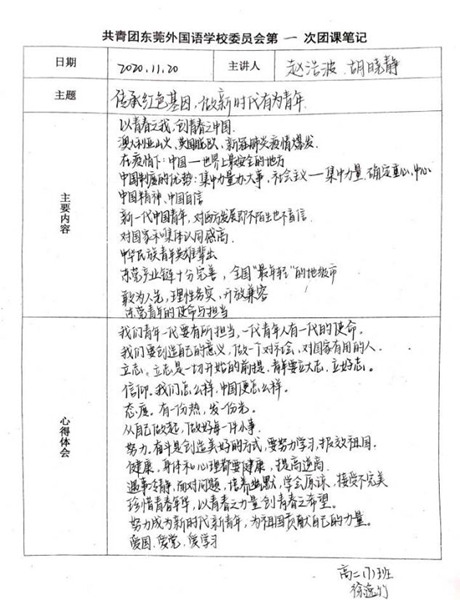 共青团东莞外国语学校委员会第 一 次团课笔记
日期 2020.11.20 主讲人 赵浩波、胡晓静
主题 传承红色基因，做新时代有为青年
主要内容
以青春之我，创青春之中国.
澳大利亚山火、英国脱欧、新冠肺炎疫情爆发.
在疫情下：中国——世界上最安全的地方
中国制度的优势：集中力量办大事，社会主义——集中力量，确定重心，中心
中国精神，中国自信
新一代中国青年，对西方发展即不陌生也不盲信.
对国家和集体认同感高.
中华民族青年英雄辈出
东莞产业链十分完善，全国“最年轻”的地级市
敢为人先，理性务实，开放兼容
东莞青年的使命与担当
心得体会
我们青年一代要有所担当，一代青年人有一代的使命.
我们要创造自己的意义，做一个对社会，对国家有用的人.
立志，立志是一切开始的前提，青年要立大志，立好志。
信仰。我们怎么样，中国便怎么样。
态度。有一份热，发一份光。
从自己做起，做好每一件小事.
努力.奋斗是创造美好的方式，要努力学习，报效祖国.
健康，身体和心理都要健康，提高逆商.
遇事冷静，面对问题，培养幽默，学会原谅，接受不完美
珍惜青春年华，以青春之力量创青春之希望。
努力成为新时代新青年，为祖国贡献自己的力量。
爱国，爱党，爱学习
高二(7)班
徐